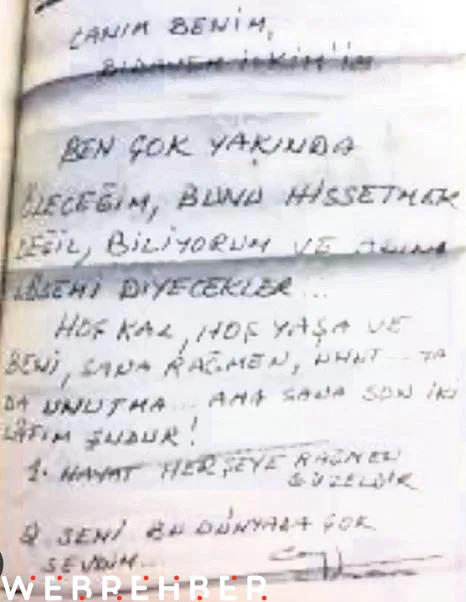 CANIM BENİM,
BİRANEM İLKİM'İM
BEN ÇOK YAKINDA
ÖLECEĞİM, BUNU HİSSETMEK
DEĞİL, BİLİYORUM VE ADINA
LÖSEMİ DİYECEKLER...
HOF KAL, HOF YAŞA VE
BENİ, SANA RAĞMEN, UNUT... YA
DA UNUTMA... AMA SANA SON İKİ
LAFIM ŞUDUR!
1. HAYAT HERŞEYE RAĞMEN
GÜZELDİR
2) SENİ BU DÜNYADA ÇOK
SEVDİM...
WEBREHBER